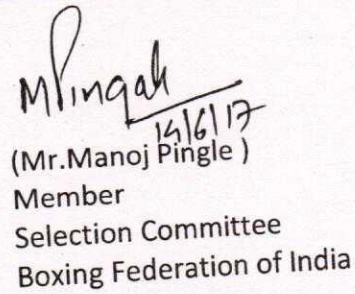 MPingale
14/6/17
(Mr.Manoj Pingle )
Member
Selection Committee
Boxing Federation of India